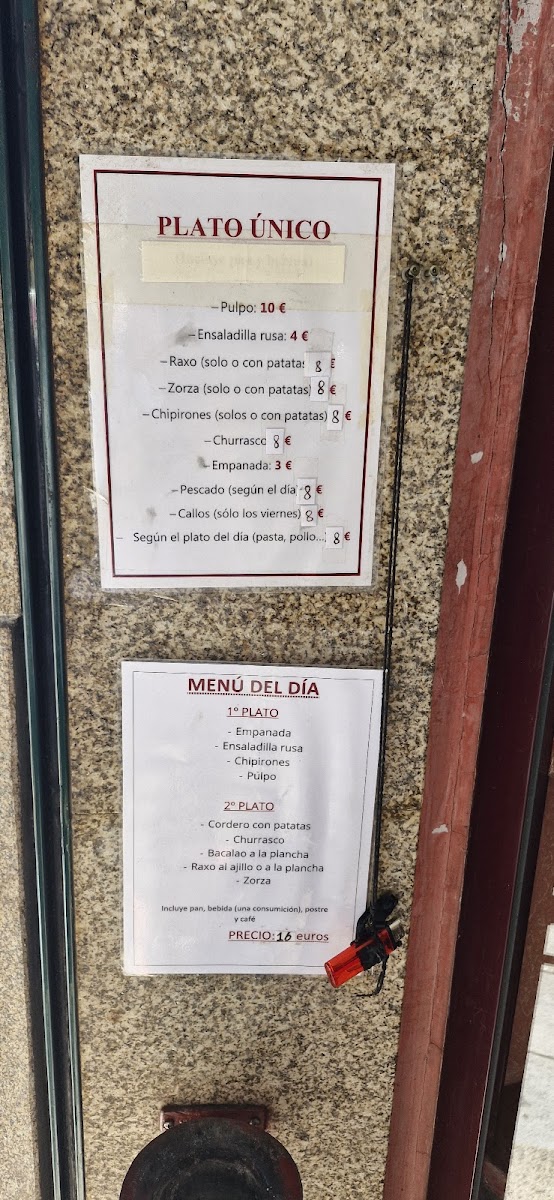 PLATO ÚNICO
– Pulpo: 10 €
– Ensaladilla rusa: 4 €
– Raxo (solo o con patatas 8 €
– Zorza (solo o con patatas) 8 €
– Chipirones (solos o con patatas) 8 €
– Churrasco 8 €
– Empanada: 3 €
– Pescado (según el día) 8 €
– Callos (sólo los viernes) 8 €
– Según el plato del día (pasta, pollo... 8 €
MENÚ DEL DÍA
1º PLATO
- Empanada
- Ensaladilla rusa
- Chipirones
- Pulpo
2º PLATO
- Cordero con patatas
- Churrasco
- Bacalao a la plancha
- Raxo al ajillo o a la plancha
- Zorza
Incluye pan, bebida (una consumición), postre
y café
PRECIO: 16 euros